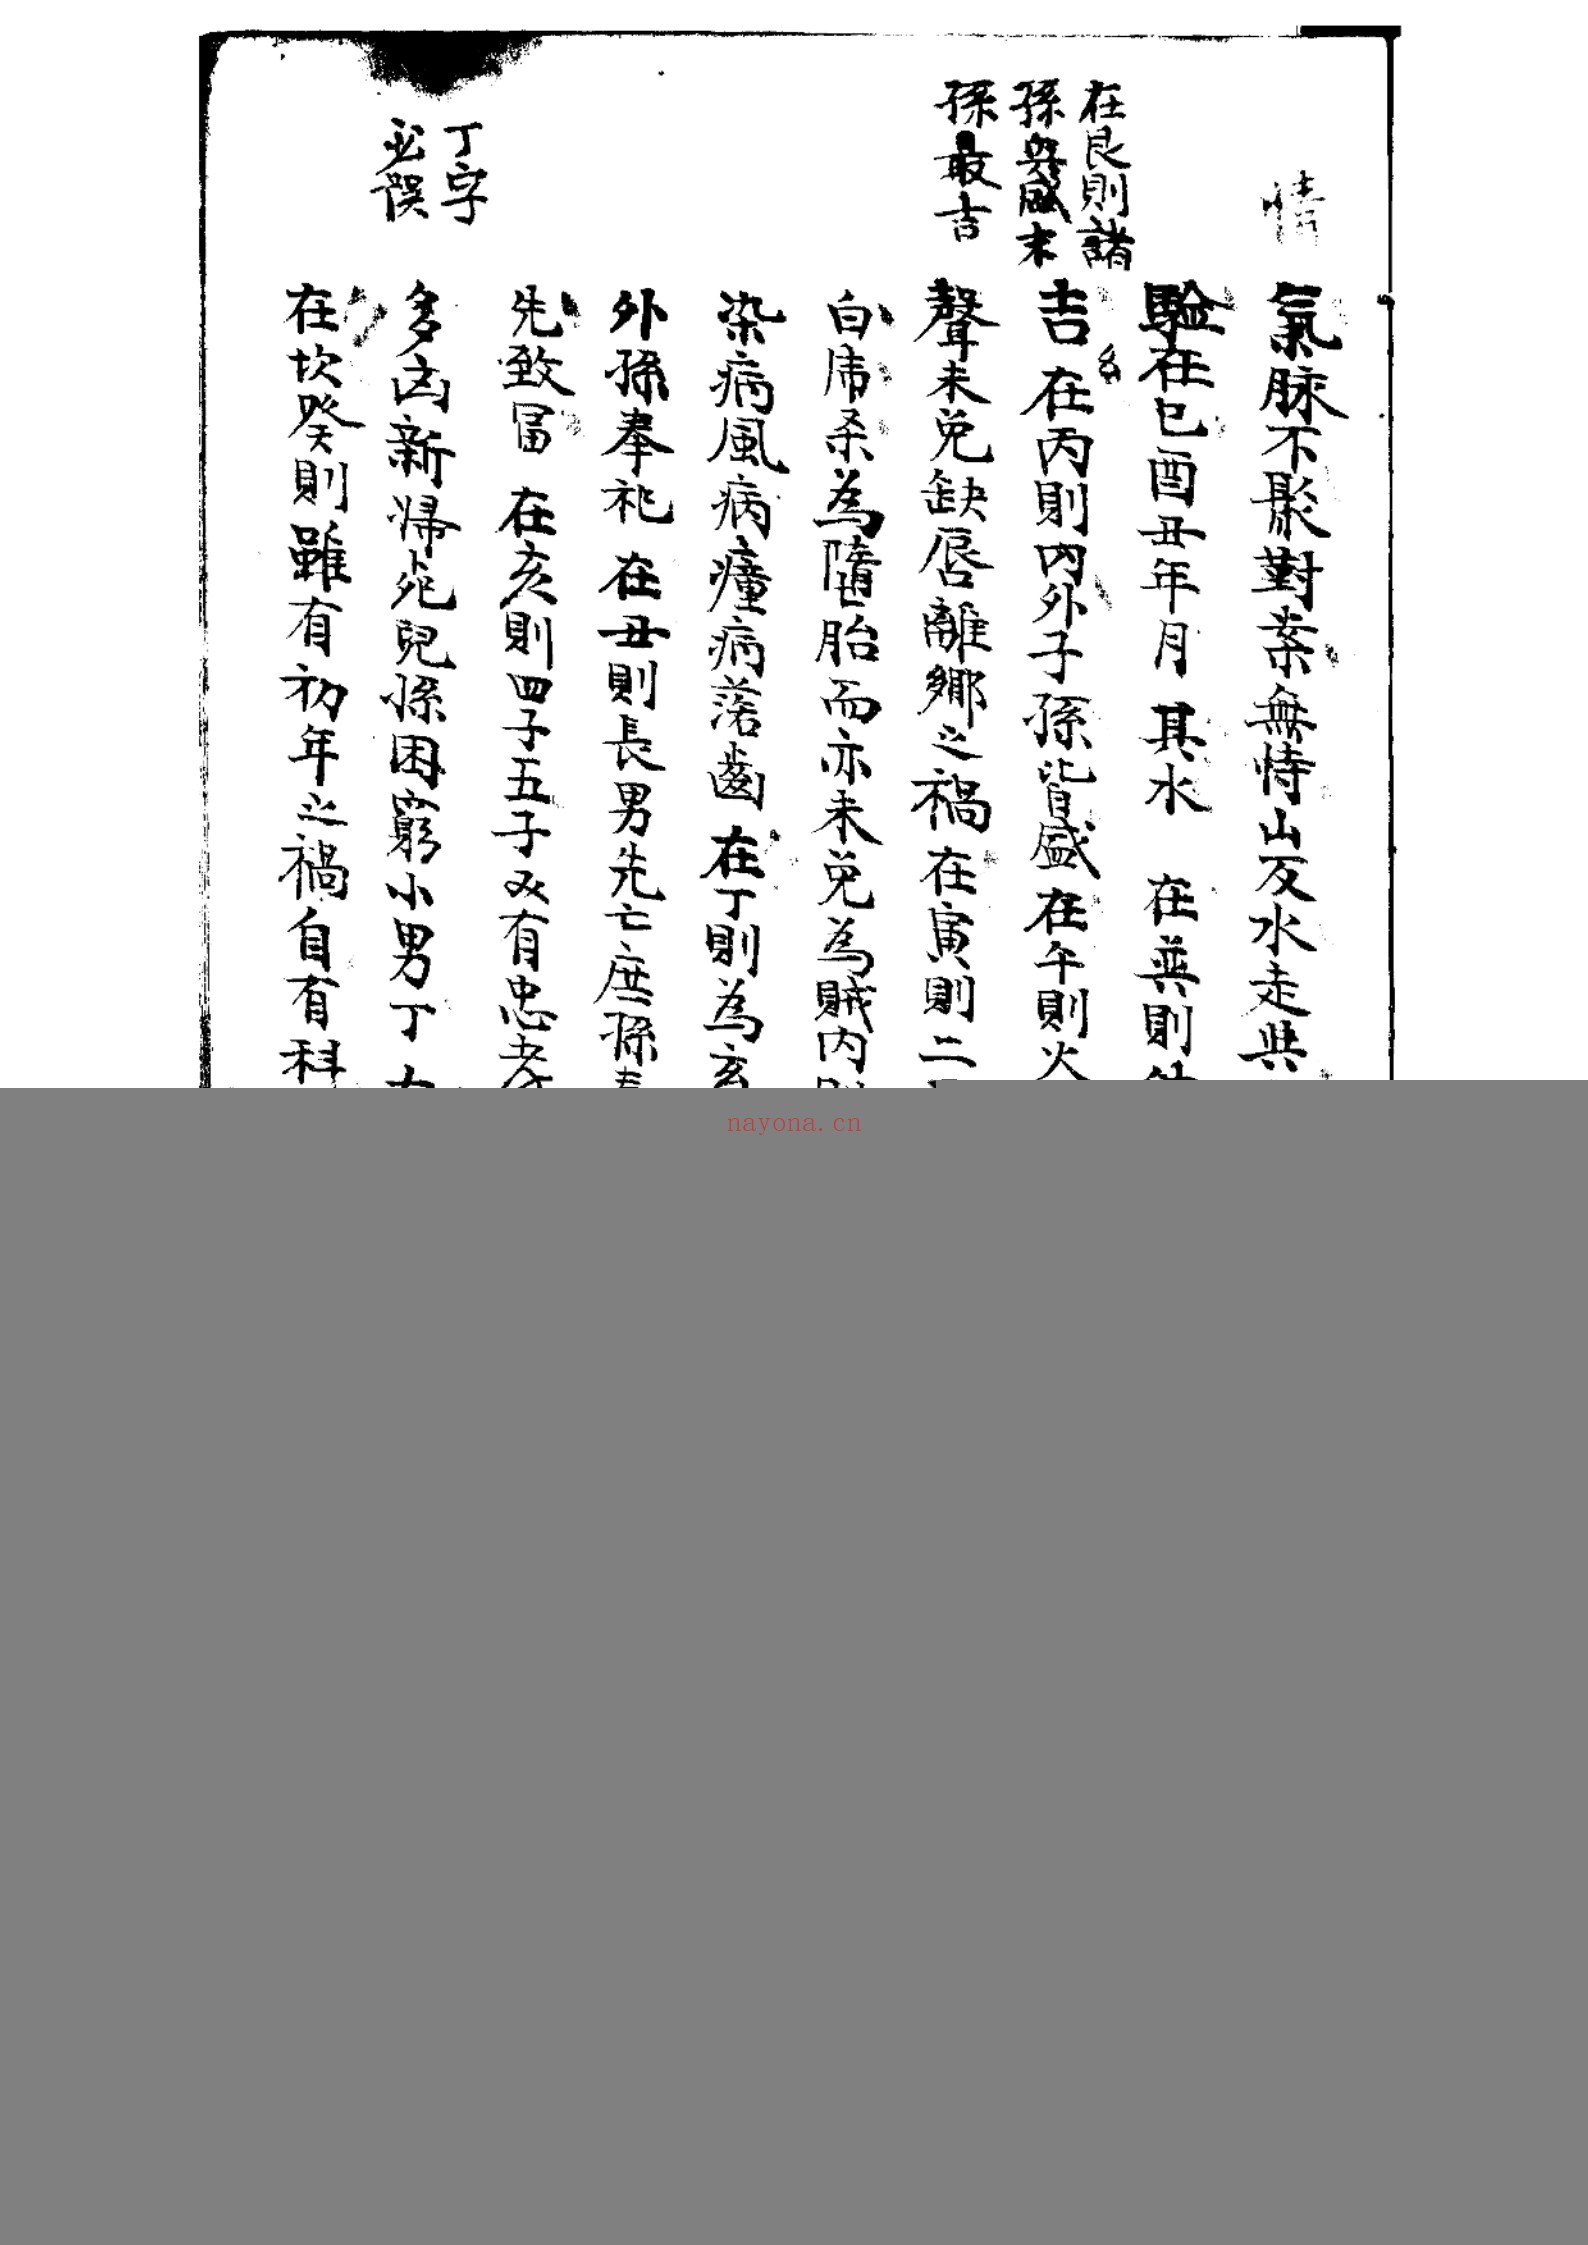 情
氣脉不聚對案無情山反水走
驗在巳酉丑年月 其水 在巽則
在艮則諸
孫興盛末
孫最吉
吉 在丙則內外子孫皆盛在午則火
聲未免缺唇離鄉之禍 在寅則二
白虎杀為墮胎而亦未免為賊內
染病風病瘇病落齒 在丁則為
外孫奉祀 在丑則長男先亡庶孫
先致冨 在亥則四子五子又有忠孝
丁字
必誤
多凶新帰兒孫困窮小男丁
在坎癸則雖有初年之禍自有科
nayona.cn